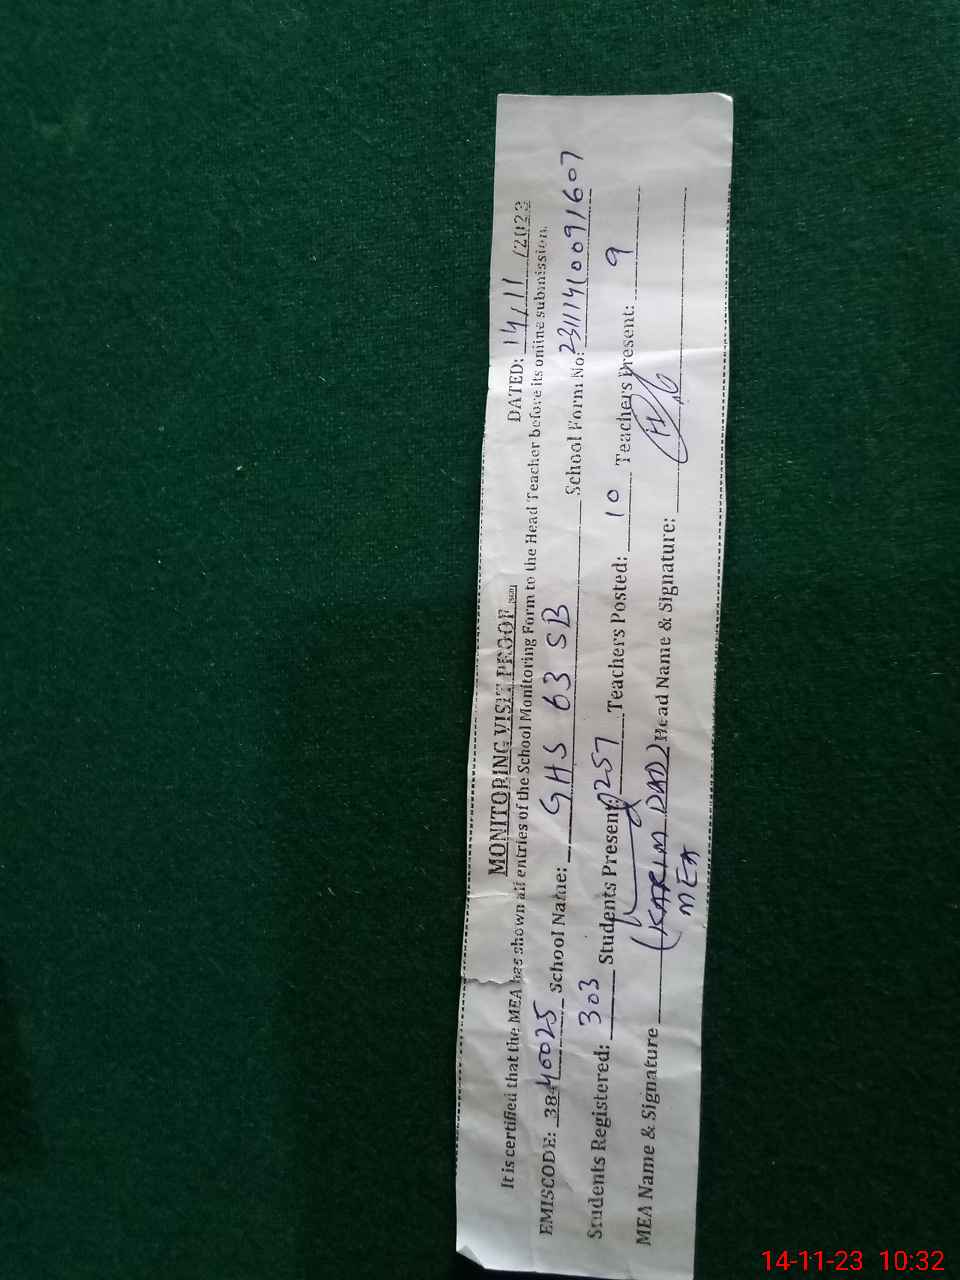 MONITORING VISIT PROOF DATED: 14/11/2023
It is certified that the MEA has shown all entries of the School Monitoring Form to the Head Teacher before its online submission.
EMISCODE: 38440025 School Name: GHS 63 SB School Form No: 23111410091607
Students Registered: 303 Students Present: 257 Teachers Posted: 10 Teachers Present: 9
MEA Name & Signature (KARIM DAD) Head Name & Signature:
MEA
14-11-23 10:32